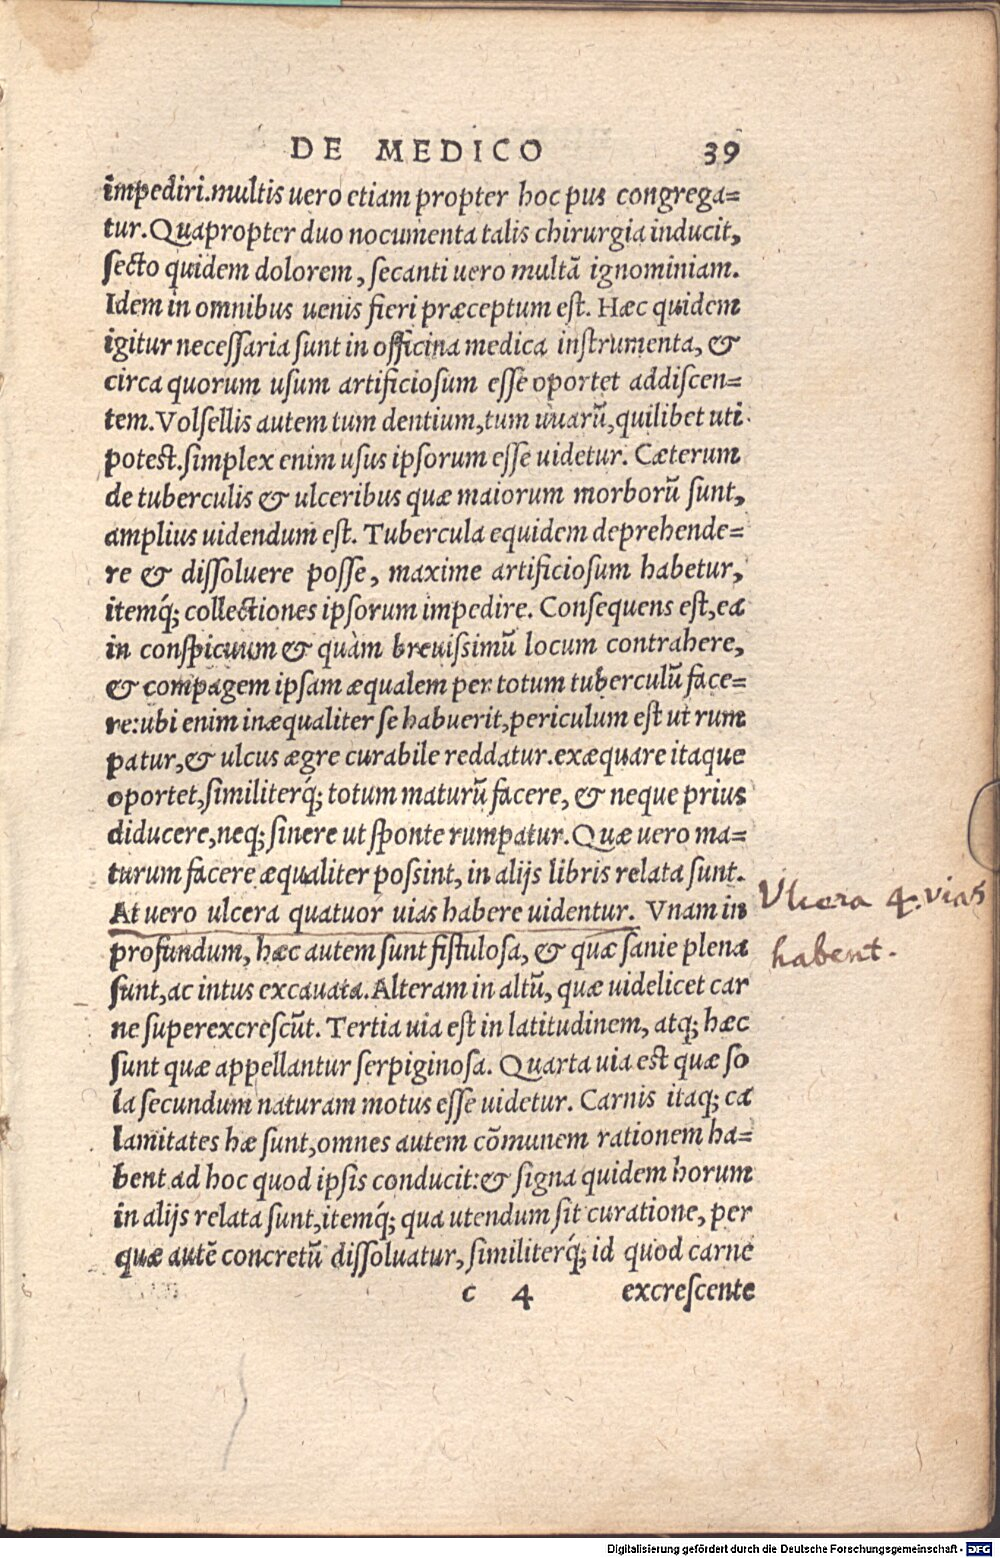 DE MEDICO 39
impediri.multis uero etiam propter hoc pus congrega=
tur.Quapropter duo nocumenta talis chirurgia inducit,
ſecto quidem dolorem, ſecanti uero multā ignominiam.
Idem in omnibus uenis fieri præceptum eſt. Hæc quidem
igitur neceſſaria ſunt in officina medica inſtrumenta, &
circa quorum uſum artificioſum eſſe oportet addiſcen=
tem.Volſellis autem tum dentium,tum uuarū,quilibet uti
poteſt.ſimplex enim uſus ipſorum eſſe uidetur. Cæterum
de tuberculis & ulceribus quæ maiorum morborū ſunt,
amplius uidendum eſt. Tubercula equidem deprehende=
re & diſſoluere poſſe, maxime artificioſum habetur,
itemq́; collectiones ipſorum impedire. Conſequens eſt,ea
in conſpicuum & quàm breuiſsimū locum contrahere,
& compagem ipſam æqualem per totum tuberculū face=
re:ubi enim inæqualiter ſe habuerit,periculum eſt ut rum
patur,& ulcus ægre curabile reddatur.exæquare itaque
oportet,ſimiliterq́; totum maturū facere, & neque prius
diducere,neq; ſinere ut ſponte rumpatur.Quæ uero ma=
turum facere æqualiter poſsint, in alijs libris relata ſunt.
At uero ulcera quatuor uias habere uidentur. Vnam in
profundum, hæc autem ſunt fiſtuloſa, & quæ ſanie plena
ſunt,ac intus excauata.Alteram in altū, quæ uidelicet car
ne ſuperexcreſcūt. Tertia uia eſt in latitudinem, atq; hæc
ſunt quæ appellantur ſerpiginoſa. Quarta uia eſt quæ ſo
la ſecundum naturam motus eſſe uidetur. Carnis itaq; ca
lamitates hæ ſunt,omnes autem cōmunem rationem ha=
bent ad hoc quod ipſis conducit:& ſigna quidem horum
in alijs relata ſunt,itemq́; qua utendum ſit curatione, per
quæ autē concretū diſſoluatur, ſimiliterq́; id quod carne
c 4 excreſcente
Ulcera 4. vias
habent.
Digitalisierung gefördert durch die Deutsche Forschungsgemeinschaft - DFG